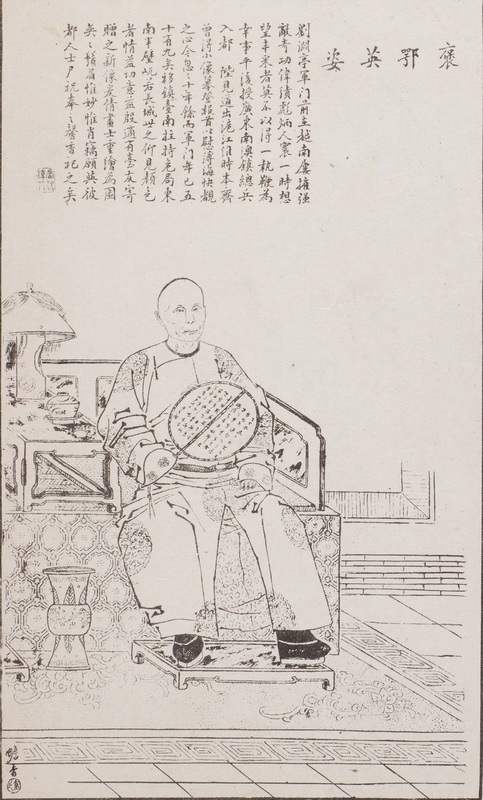 褒鄂英姿
劉淵亭軍門前在越南屢摧強
敵奇功偉績彪炳人寰一時想
望丰采者莫不以得一執鞭為
幸事平後授廣東南澳鎮總兵
入都 陛見道出滬江維時本齋
曾得小像摹登報首以慰薄海快覩
之心今忽々十年餘而軍門年已五
十有九矣移鎮臺南拄持危局東
南半壁屹若長城世之仰見顏色
者情益切意益殷適有臺友寄
贈之新像爰倩畫士重繪為圖
奕々鬚眉惟妙惟肖竊願與彼
都人士尸祝奉之馨香祀之矣
蟾香